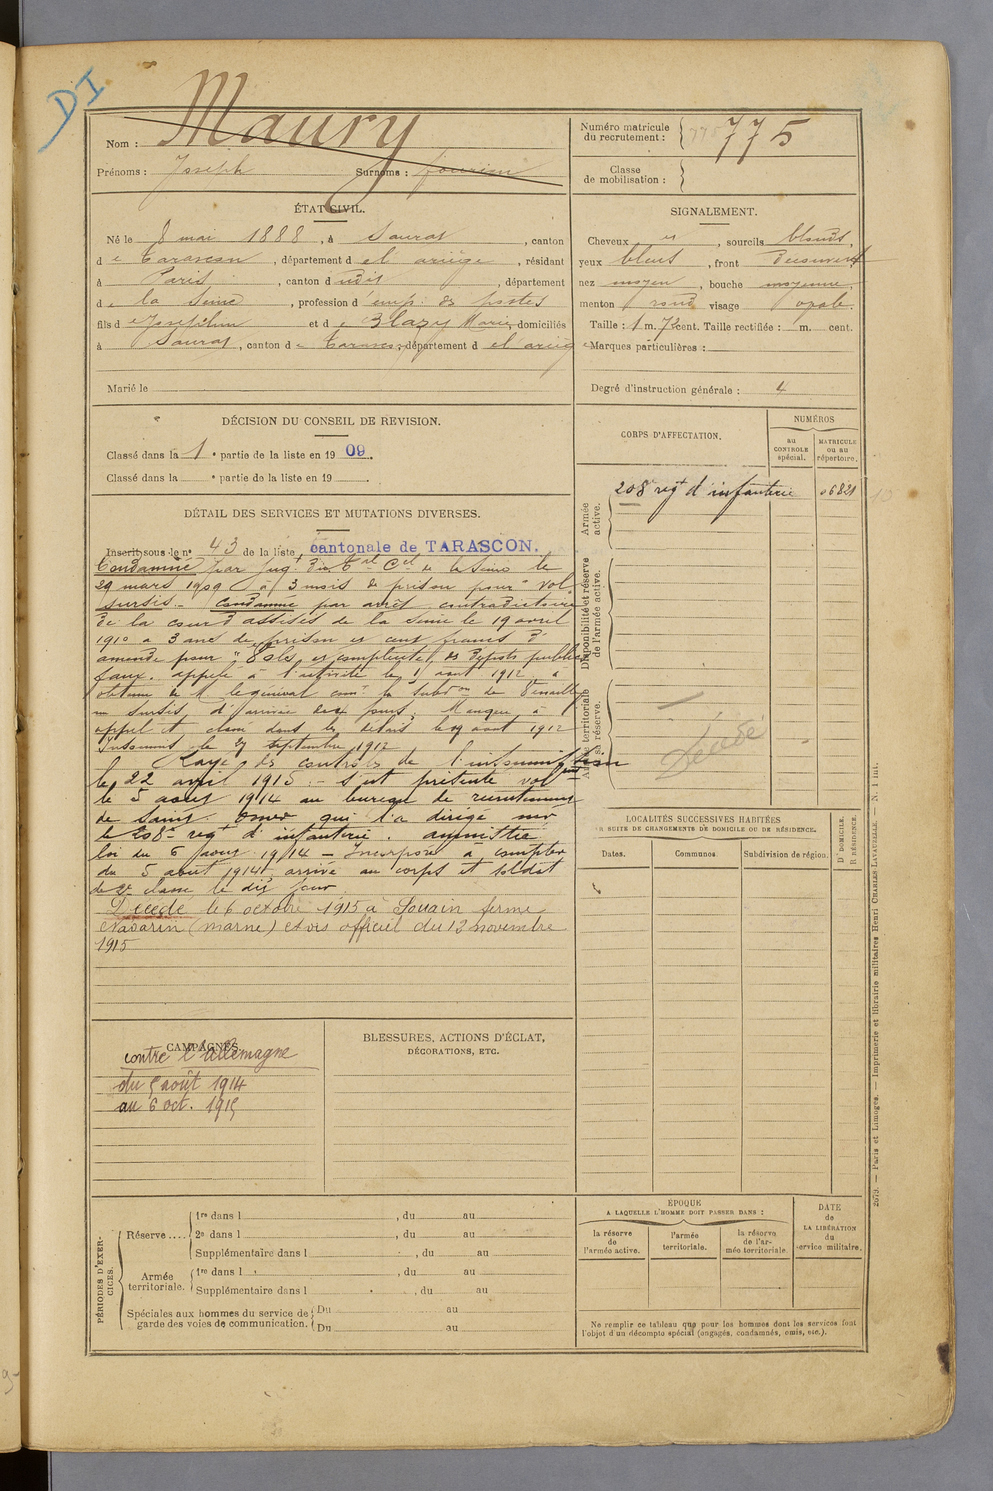 DI
Nom : Maury
Prénoms : Joseph Surnoms :
Numéro matricule
du recrutement : 775
Classe
de mobilisation :
ÉTAT CIVIL.
Né le 8 mai 1888, à Saurat, canton
de Tarascon, département d el ariège, résidant
à Paris, canton d udit, département
de la Seine, profession d emp. des postes
fils de Joséphin et de Blazy Marie, domiciliés
à Saurat, canton de Tarascon, département d el ariège
Marié le
SIGNALEMENT.
Cheveux et, sourcils blonds,
yeux bleus, front découvert
nez moyen, bouche moyenne,
menton rond visage ovale.
Taille : 1 m. 72 cent. Taille rectifiée : m. cent.
Marques particulières :
Degré d'instruction générale : 4
DÉCISION DU CONSEIL DE REVISION.
Classé dans la 1e partie de la liste en 1909.
Classé dans la e partie de la liste en 19
CORPS D'AFFECTATION.
NUMÉROS
au
CONTROLE
spécial.
MATRICULE
ou au
répertoire.
Armée
active.
208e regt d'infanterie 06821
Disponibilité et réserve
de l'armée active.
Armée territoriale
et sa réserve.
Décédé
DÉTAIL DES SERVICES ET MUTATIONS DIVERSES.
Inscrit sous le no 43 de la liste cantonale de TARASCON.
Condamné par jugt du Tal Cel de la Seine le
29 mars 1909 à 3 mois de prison pour vol
sursis. - Condamné par arrêt contradictoire
de la cour d'assises de la Seine le 19 avril
1910 à 3 ans de prison et cent francs d'
amende pour "Vols et complicité, de dépots publics
faux. appelé à l'activité le 1 aout 1912 a
obtenu de M le général comt la Subdon de Versailles
un sursis d'arrivée de 4 jours. Manque à
appel et classé dans les détails le 19 aout 1912
Insoumis le 27 septembre 1912
Rayé des controles de l'insoumission
le 22 avril 1915 - s'est présenté volt
le 5 aout 1914 au bureau de recrutement
de Saint Omer qui l'a dirigé sur
le 208e regt d'infanterie. amnistié
loi du 5 aout 1914 - Incorporé à compter
du 5 aout 1914 arrivé au corps et soldat
de 2e classe le dit jour
Décédé le 6 octobre 1915 à Souain ferme
Navarin (Marne) avis officiel du 12 novembre
1915
LOCALITÉS SUCCESSIVES HABITÉES
PAR SUITE DE CHANGEMENTS DE DOMICILE OU DE RÉSIDENCE.
Dates.
Communes.
Subdivision de région.
D. DOMICILE.
R. RÉSIDENCE.
CAMPAGNES.
contre l'allemagne
du 5 août 1914
au 6 oct. 1915
BLESSURES, ACTIONS D'ÉCLAT,
DÉCORATIONS, ETC.
PÉRIODES D'EXER-
CICES.
Réserve ....
1re dans l , du au
2e dans l , du au
Supplémentaire dans l , du au
Armée
territoriale.
1re dans l , du au
Supplémentaire dans l , du au
Spéciales aux hommes du service de
garde des voies de communication.
Du au
Du au
ÉPOQUE
A LAQUELLE L'HOMME DOIT PASSER DANS :
la réserve
de
l'armée active.
l'armée
territoriale.
la réserve
de l'ar-
mée territoriale.
DATE
de
LA LIBÉRATION
du
service militaire.
Ne remplir ce tableau que pour les hommes dont les services font
l'objet d'un décompte spécial (engagés, condamnés, omis, etc.).
2079. — Paris et Limoges. — Imprimerie et librairie militaires Henri CHARLES-LAVAUZELLE. — N. 1 int.